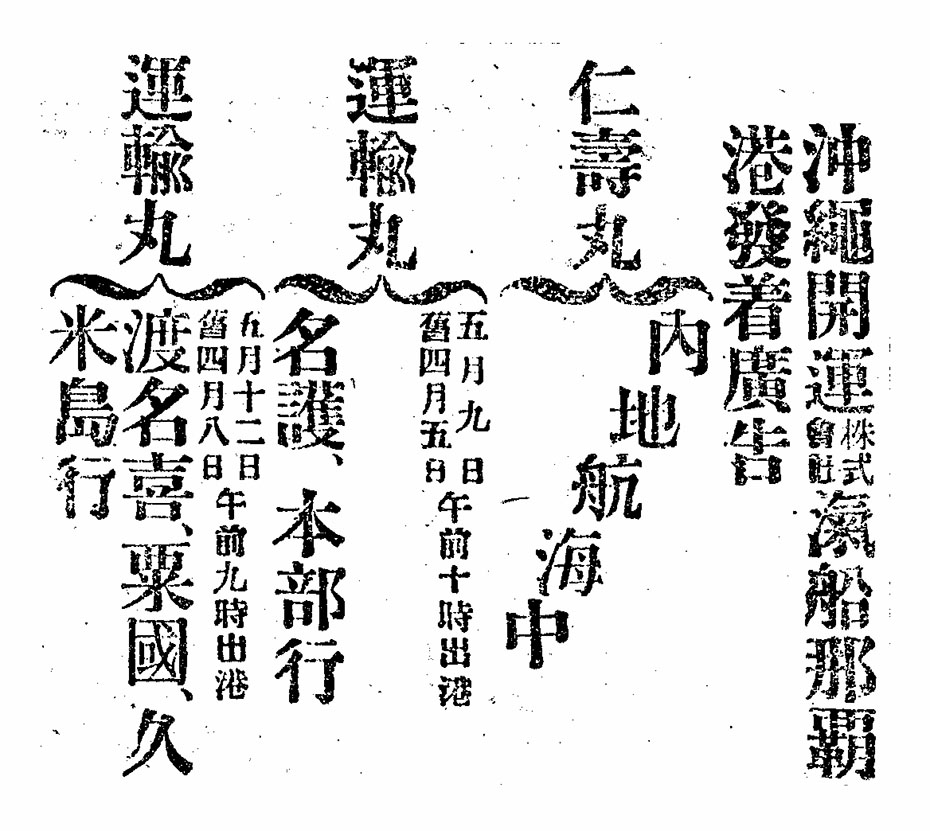 沖繩開運株式會社滊船那覇
港發着廣告
仁壽丸
內地航海中
運輸丸
五月九日
舊四月五日
午前十時出港
名護、本部行
運輸丸
五月十二日
舊四月八日
午前九時出港
渡名喜、粟國、久
米島行